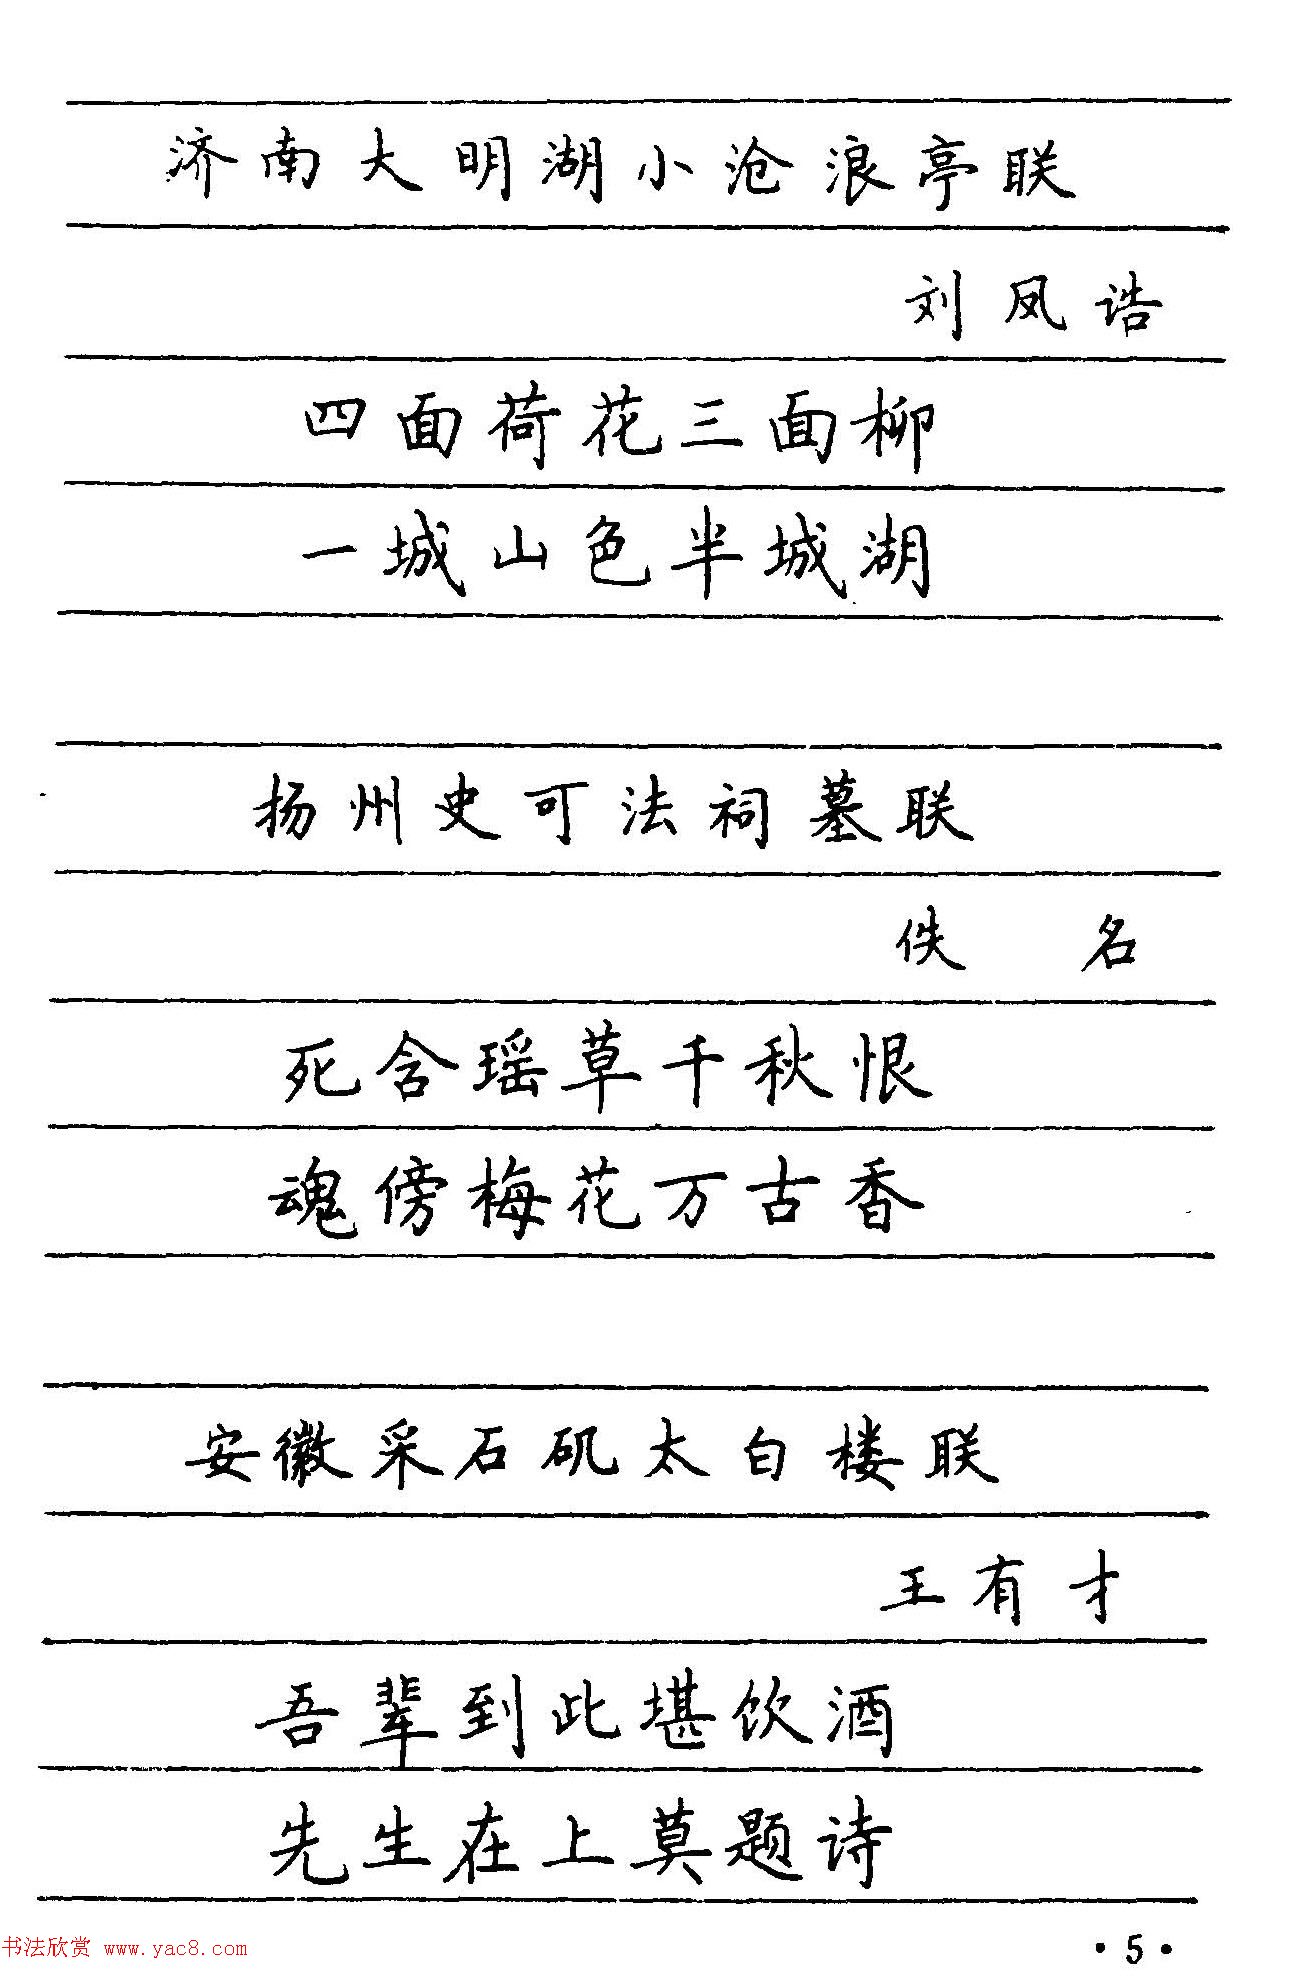 济南大明湖小沧浪亭联
刘凤诰
四面荷花三面柳
一城山色半城湖
扬州史可法祠墓联
佚名
死含瑶草千秋恨
魂傍梅花万古香
安徽采石矶太白楼联
王有才
吾辈到此堪饮酒
先生在上莫题诗
书法欣赏 www.yac8.com
·5·